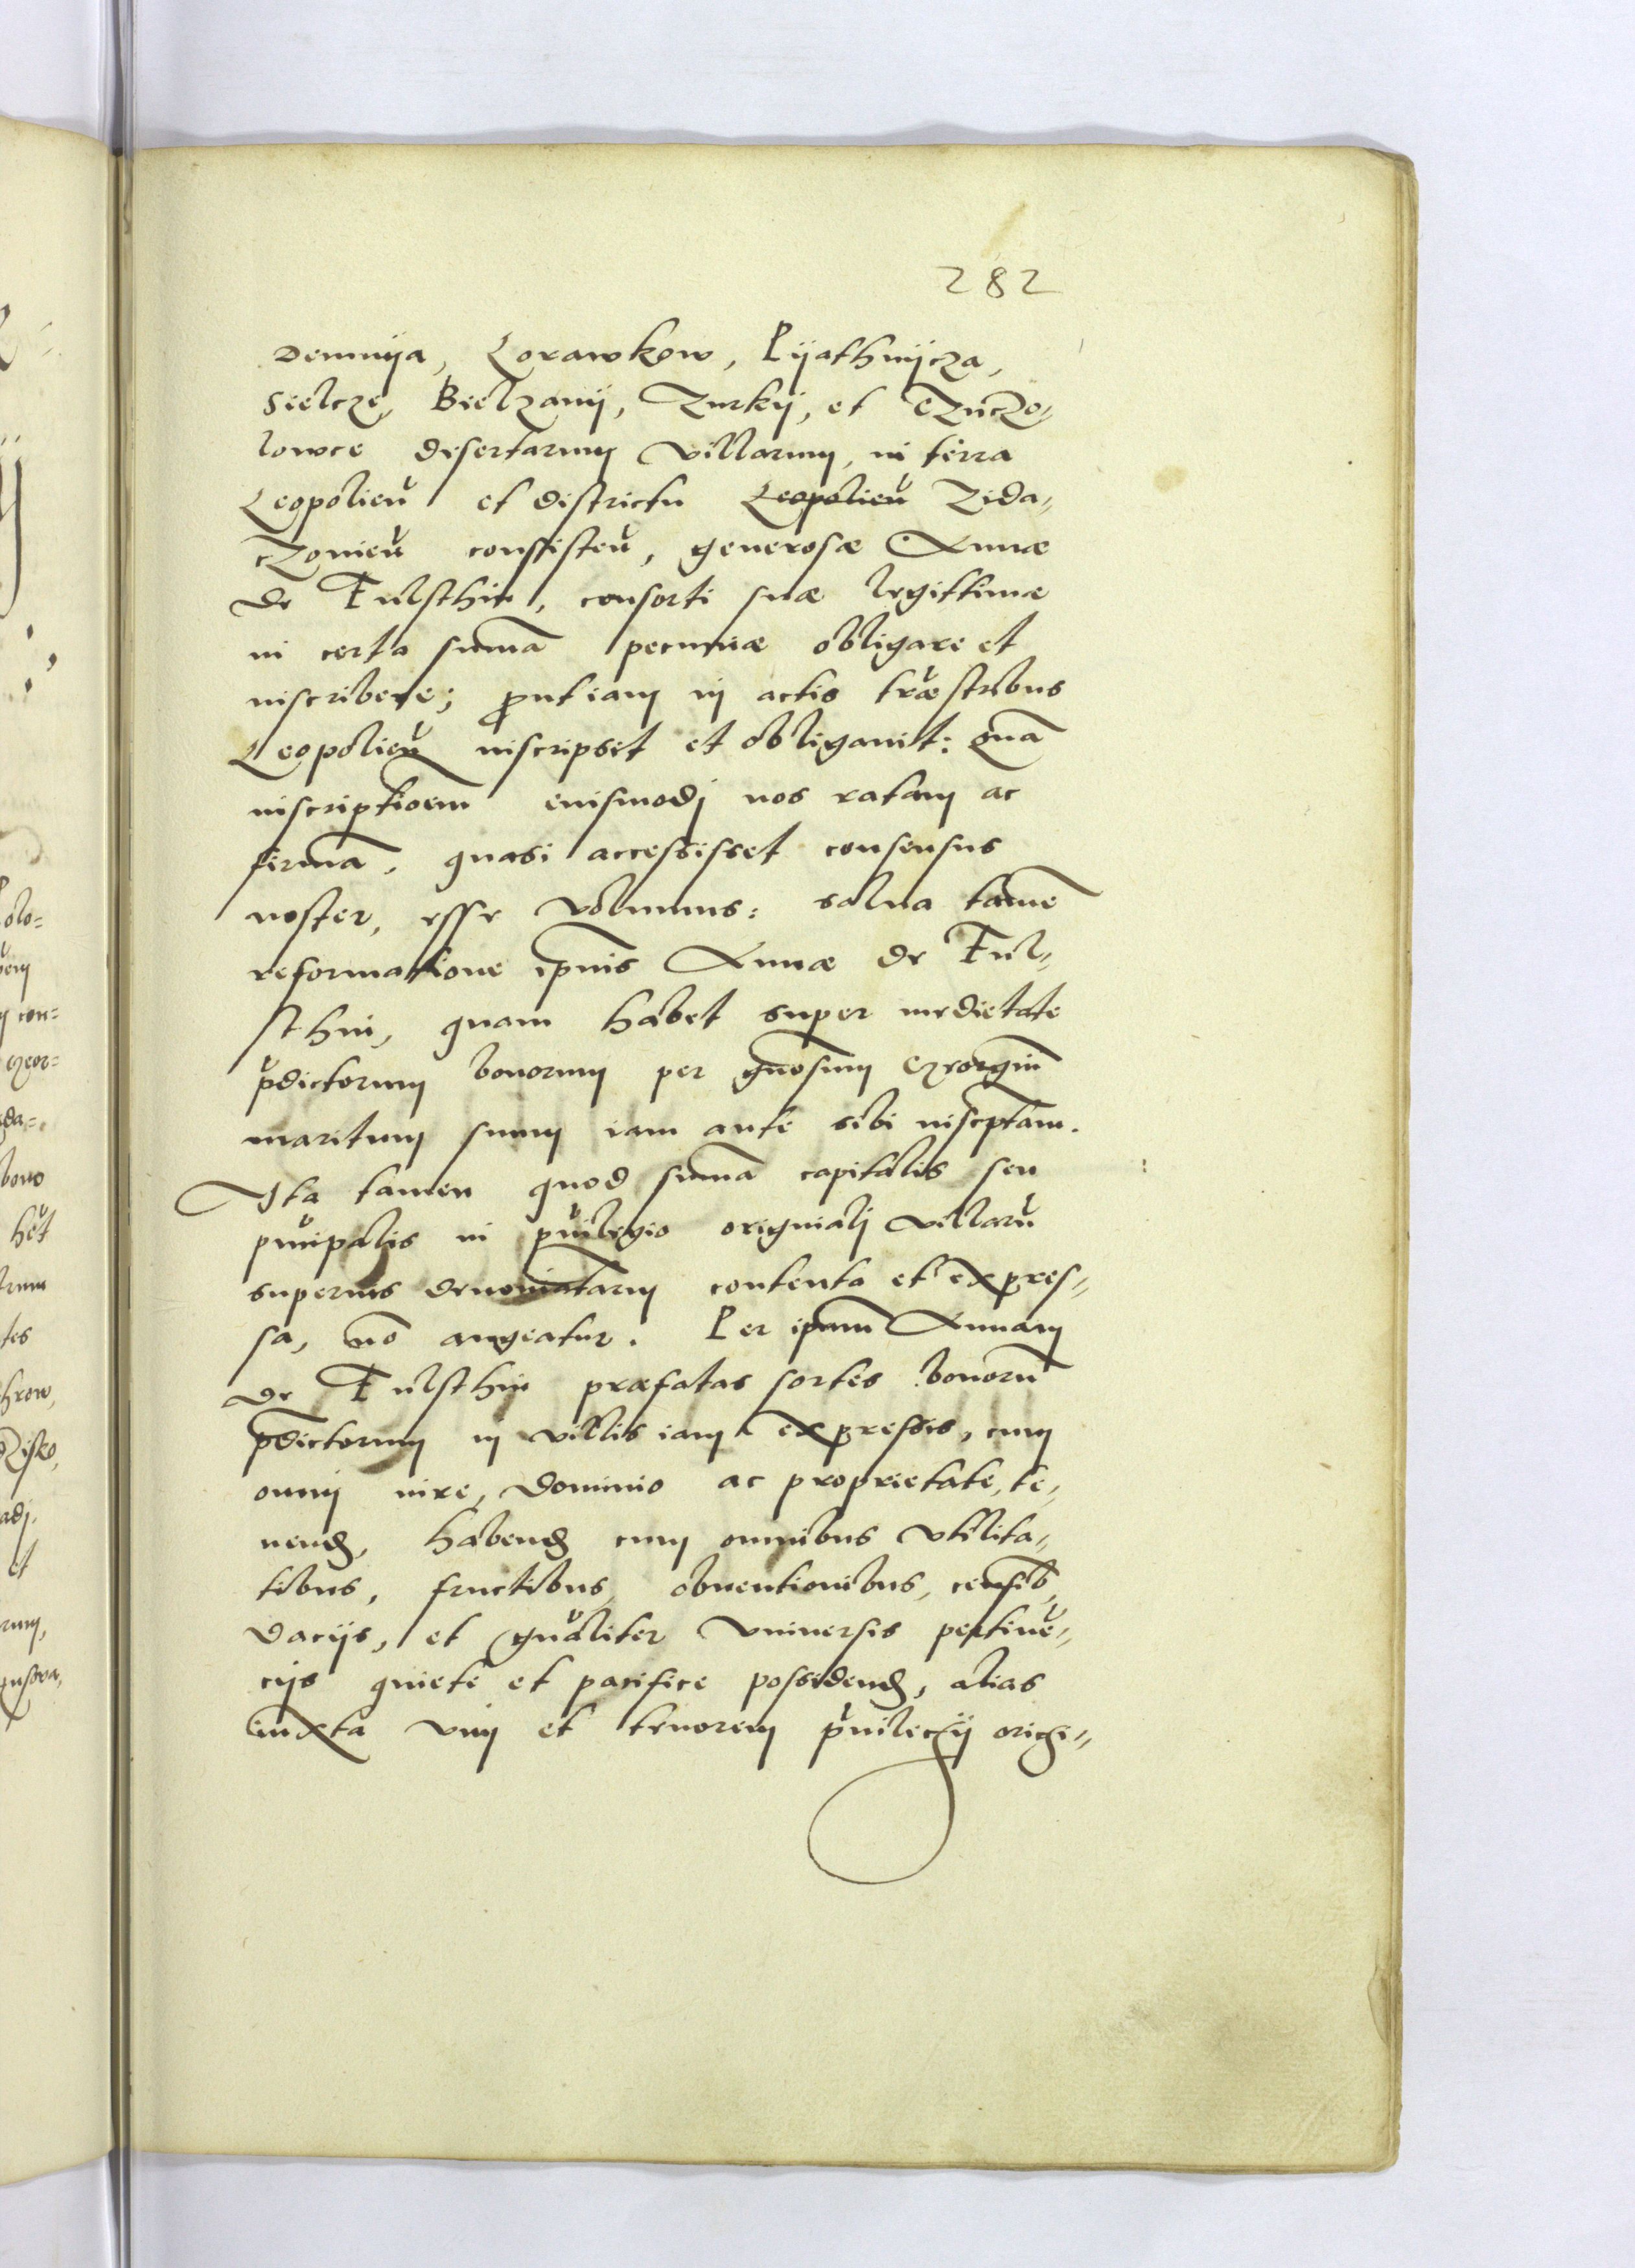 282
Demnija, Lorawkow, Pijathnijcza,
Sielcze, Bielzanij, Turkij, et Czucze„
lowce desertarum villarum, in terra
Leopolien̄ et districtu Leopolien̄ Zida„
czonien̄ consisten̄, generosæ Annæ
de Fulsthin, consorti suæ legittimæ
in certa sum̄a pecuniæ obligare et
inscribere; prout iam in actis træstribus
Leopolien̄ inscripsit et obligauit: quā
inscriptioem̄ eiusmodj nos ratam ac
firmā, quasi accessisset consensus
noster, esse volumus: salua tamē
reformatione ipsius Annæ de Ful„
sthin, quam habet super medietate
p̄dictorum bonorum per gn̄osum Georgiū
maritum suum iam ante sibi inscptam.
Ita tamen quod sum̄a capitalis seu
prncipalis in pruilegio originalj villarū
superius denoīatarum contenta et expres„
sa, nō augeatur. Per ipsam Annam
de Fulsthin præfatas sortes bonorū
p̄dictorum in villis iam expressis, cum
omnj iure, dominio ac proprietate, te„
nend, habend cum omnibus vtilita„
tibus, fructibus, obuentionibus, censib,
dacijs, et gnaliter vniuersis pertinē„
cijs quiete et pacifice possidend, alias
iuxta vim et tenorem pruilegij origi„
olo=
con=
geor=
bono
het
tes
hrow,
et